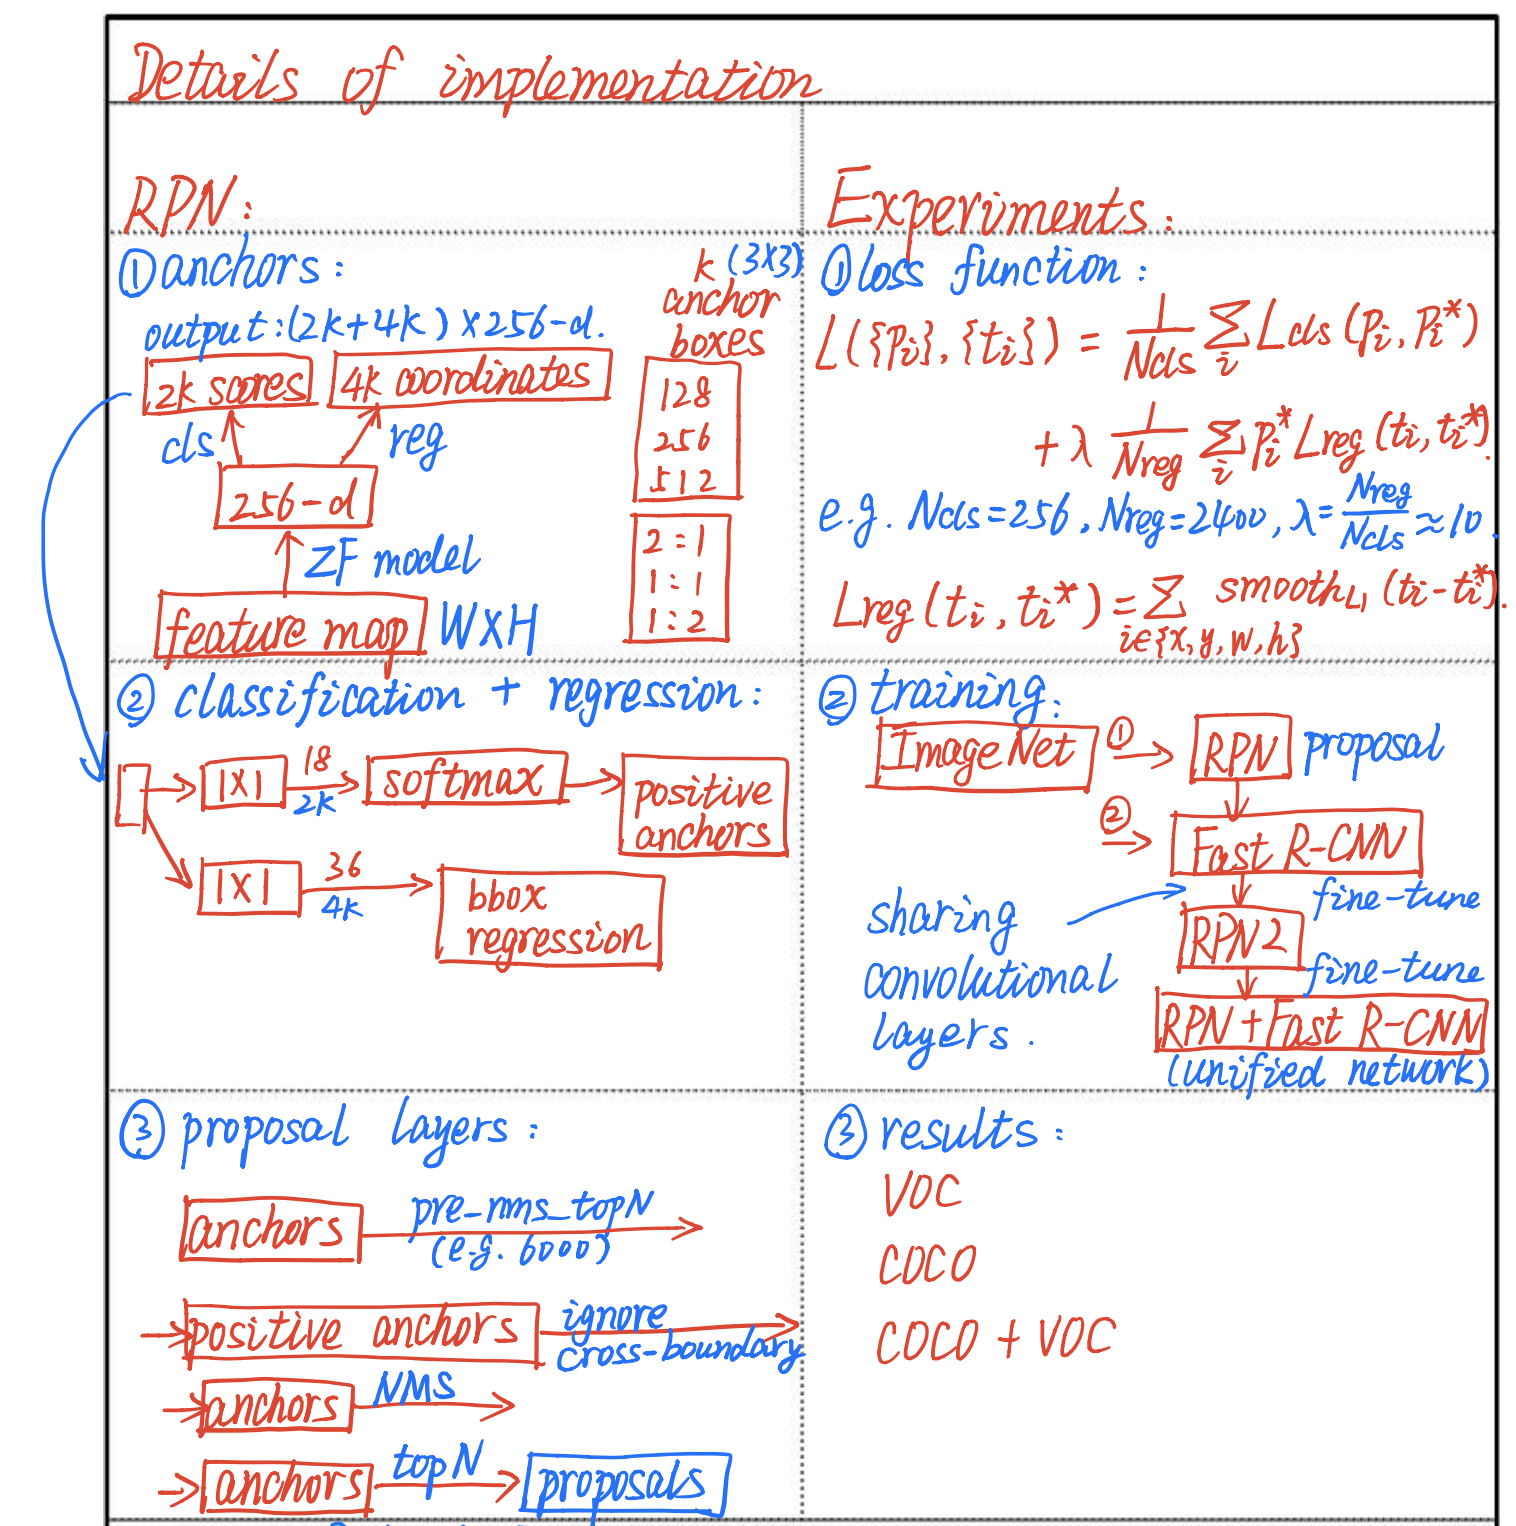 Details of implementation
RPN:
① anchors:
output: (2k+4k) × 256-d.
2k scores
4k coordinates
cls
reg
256-d
ZF model
feature map
W×H
k (3×3)
anchor
boxes
128
256
512
2:1
1:1
1:2
② classification + regression:
1×1
18
2k
softmax
positive
anchors
1×1
36
4k
bbox
regression
③ proposal layers:
anchors
pre-nms_topN
(e.g. 6000)
positive anchors
ignore
cross-boundary
anchors
NMS
anchors
topN
proposals
Experiments:
① loss function:
L({Pi}, {ti}) = 1/Ncls Σi Lcls (Pi, Pi*)
+ λ 1/Nreg Σi Pi* Lreg (ti, ti*).
e.g. Ncls=256, Nreg=2400, λ=Nreg/Ncls≈10.
Lreg (ti, ti*) = Σ i∈{x,y,w,h} smoothL1 (ti-ti*).
② training:
ImageNet
①
RPN
proposal
②
Fast R-CNN
fine-tune
sharing
convolutional
layers.
RPN2
fine-tune
RPN+Fast R-CNN
(unified network)
③ results:
VOC
COCO
COCO + VOC